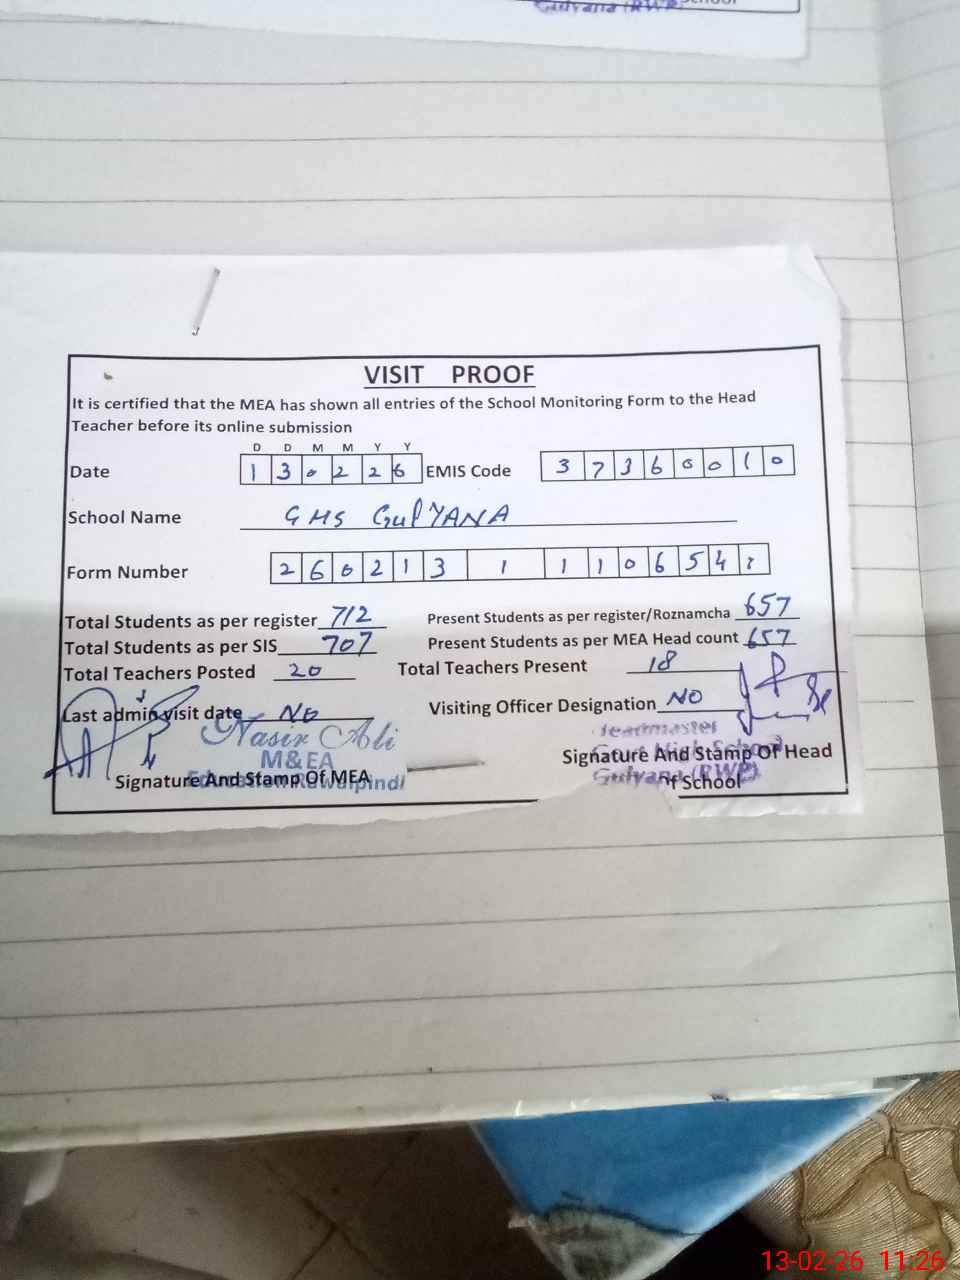 Gulyana (RWP)
VISIT PROOF
It is certified that the MEA has shown all entries of the School Monitoring Form to the Head
Teacher before its online submission
D D M M Y Y
Date 1 3 0 2 2 6 EMIS Code 3 7 3 6 0 0 1 0
School Name GHS GulYANA
Form Number 2 6 0 2 1 3 1 1 1 0 6 5 4
Total Students as per register 712 Present Students as per register/Roznamcha 657
Total Students as per SIS 707 Present Students as per MEA Head count 657
Total Teachers Posted 20 Total Teachers Present 18
Last admin visit date No Visiting Officer Designation NO
Nasir Ali
M&EA
Education Rawalpindi
Signature And Stamp Of MEA
Headmaster
Govt High School
Gulyana (RWP)
Signature And Stamp Of Head
Of School
13-02-26 11:26